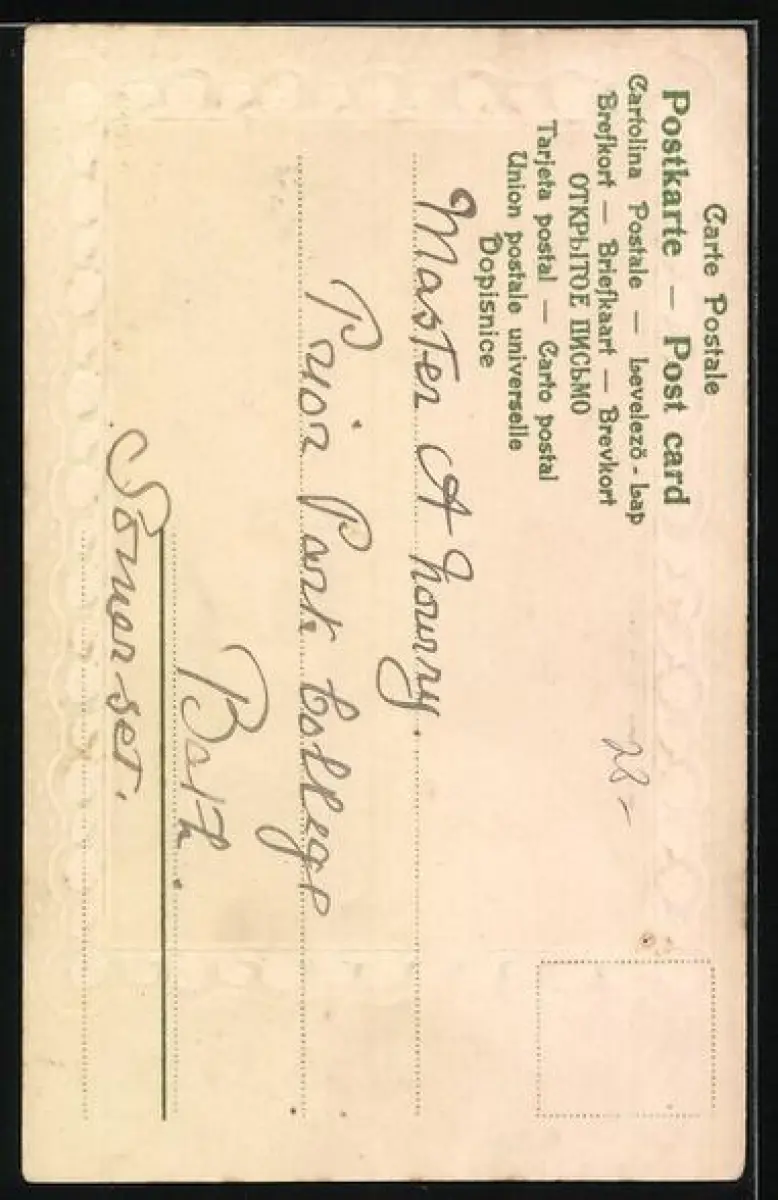 Carte Postale
Postkarte — Post card
Cartolina Postale — Levelező-Lap
Brefkort — Briefkaart — Brevkort
ОТКРЫТОЕ ПИСЬМО
Tarjeta postal — Carto postal
Union postale universelle
Dopisnice
28-
Master A
Prior Park College
Bath.
Somerset.